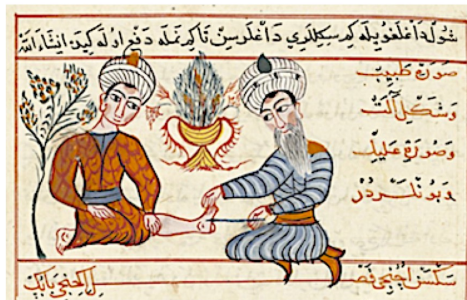 شول داغلغويله كم سكيللري داغلرسن تا كم نمله دفع اوله كيده انشا الله
صورة طبيب
وشكل آلت
وصورة عليل
وبونلردر
سكسن اجنجي فصل اكنجي بابك